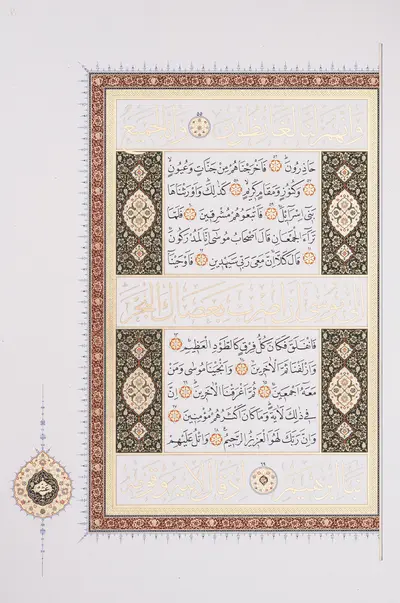 وَاِنَّهُمْ لَنَا لَغَائِظُونَ ۵۵ وَاِنَّا لَجَمِيعٌ
حَاذِرُونَ فَاَخْرَجْنَاهُمْ مِنْ جَنَّاتٍ وَعُيُونٍ
وَكُنُوزٍ وَمَقَامٍ كَرِيمٍ كَذٰلِكَ وَاَوْرَثْنَاهَا
بَنِى اِسْرَائِيلَ فَاَتْبَعُوهُمْ مُشْرِقِينَ فَلَمَّا
تَرَاءَ الْجَمْعَانِ قَالَ اَصْحَابُ مُوسٰى اِنَّا لَمُدْرَكُونَ
قَالَ كَلَّا اِنَّ مَعِىَ رَبِّى سَيَهْدِينِ فَاَوْحَيْنَا
اِلٰى مُوسٰى اَنِ اضْرِبْ بِعَصَاكَ الْبَحْرَ
فَانْفَلَقَ فَكَانَ كُلُّ فِرْقٍ كَالطَّوْدِ الْعَظِيمِ
وَاَزْلَفْنَا ثَمَّ الْاٰخَرِينَ وَاَنْجَيْنَا مُوسٰى وَمَنْ
مَعَهُ اَجْمَعِينَ ثُمَّ اَغْرَقْنَا الْاٰخَرِينَ اِنَّ
فِى ذٰلِكَ لَاٰيَةً وَمَا كَانَ اَكْثَرُهُمْ مُؤْمِنِينَ
وَاِنَّ رَبَّكَ لَهُوَ الْعَزِيزُ الرَّحِيمُ وَاتْلُ عَلَيْهِمْ
نَبَاَ اِبْرٰهِيمَ ۶۹